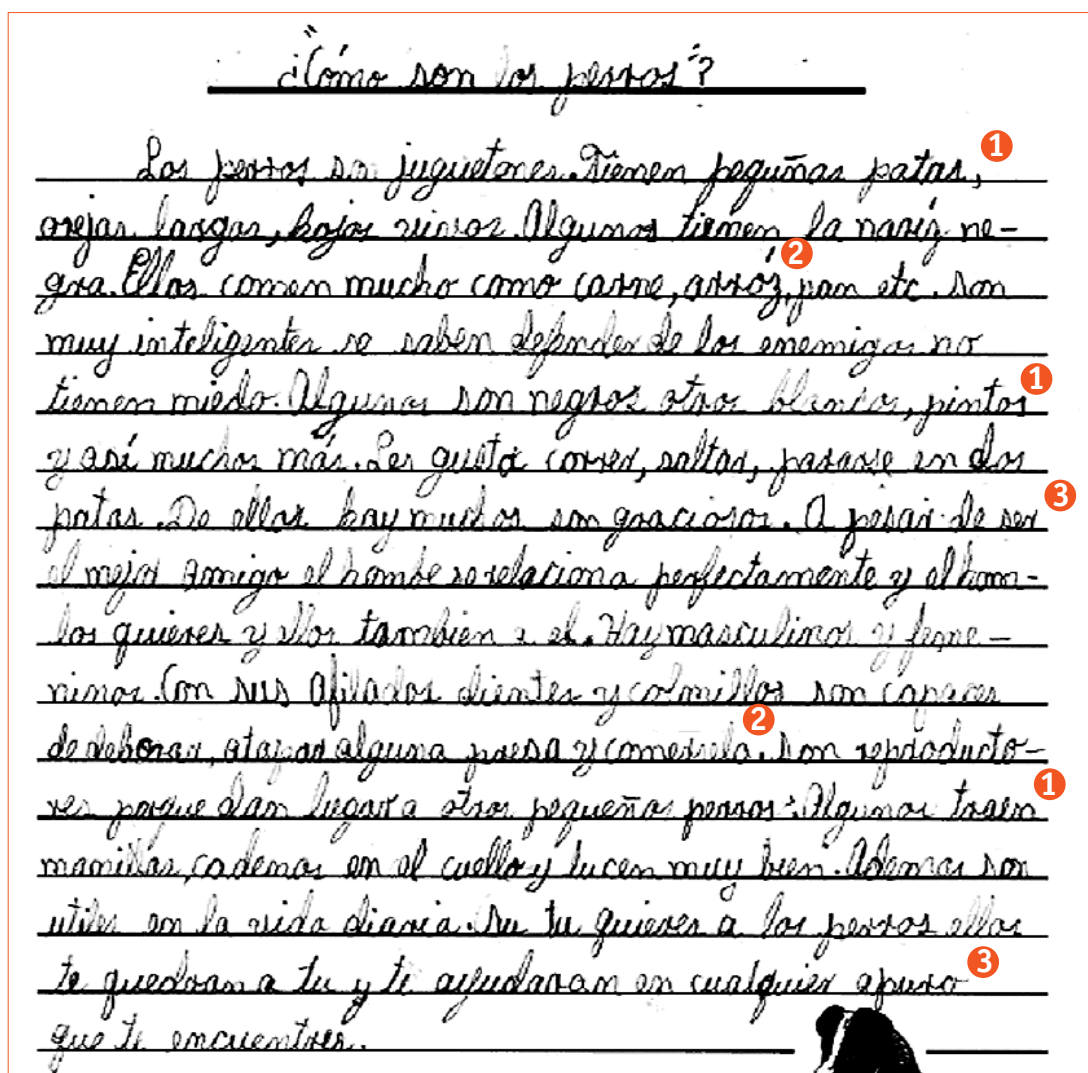 ¿"Cómo son los perros"?
Los perros son juguetones. Tienen pequñas patas, 1
orejas largas, hojos vivos. Algunos tienen la naríz ne-
gra. Ellos comen mucho como carne, arróz, pan etc. son 2
muy inteligentes se saben defender de los enemigos no
tienen miedo. Algunos son negros otros blancos, pintos 1
y así muchos más. Les gusta correr, saltar, pararse en dos
patas. De ellos hay muchos son graciosos. A pesar de ser 3
el mejor amigo el hombe se relaciona perfectamente y el hom-
los quieres y ellos tambien a el. Hay masculinos y feme-
ninos. Con sus afilados dientes y colmillos son capaces
de deborar, atapar alguna presa y comersela. Son reproducto- 2
res porque dan lugar a otros pequeños perros. Algunos traen 1
mamillas, cadenas en el cuello y lucen muy bien. Ademas son
utiles en la vida diaria. Su tu quieres a los perros ellos
te quedran a tu y te ayudaran en cualquier apuro 3
que te encuentres.